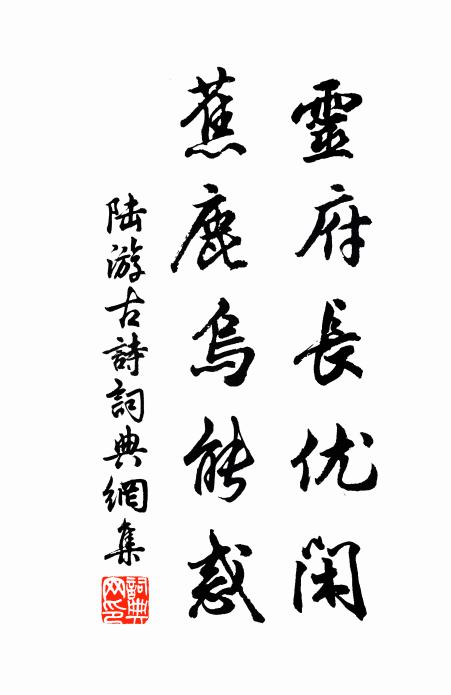 靈府長优闲
蕉鹿烏能惑
陆游古詩詞典網集
詞典